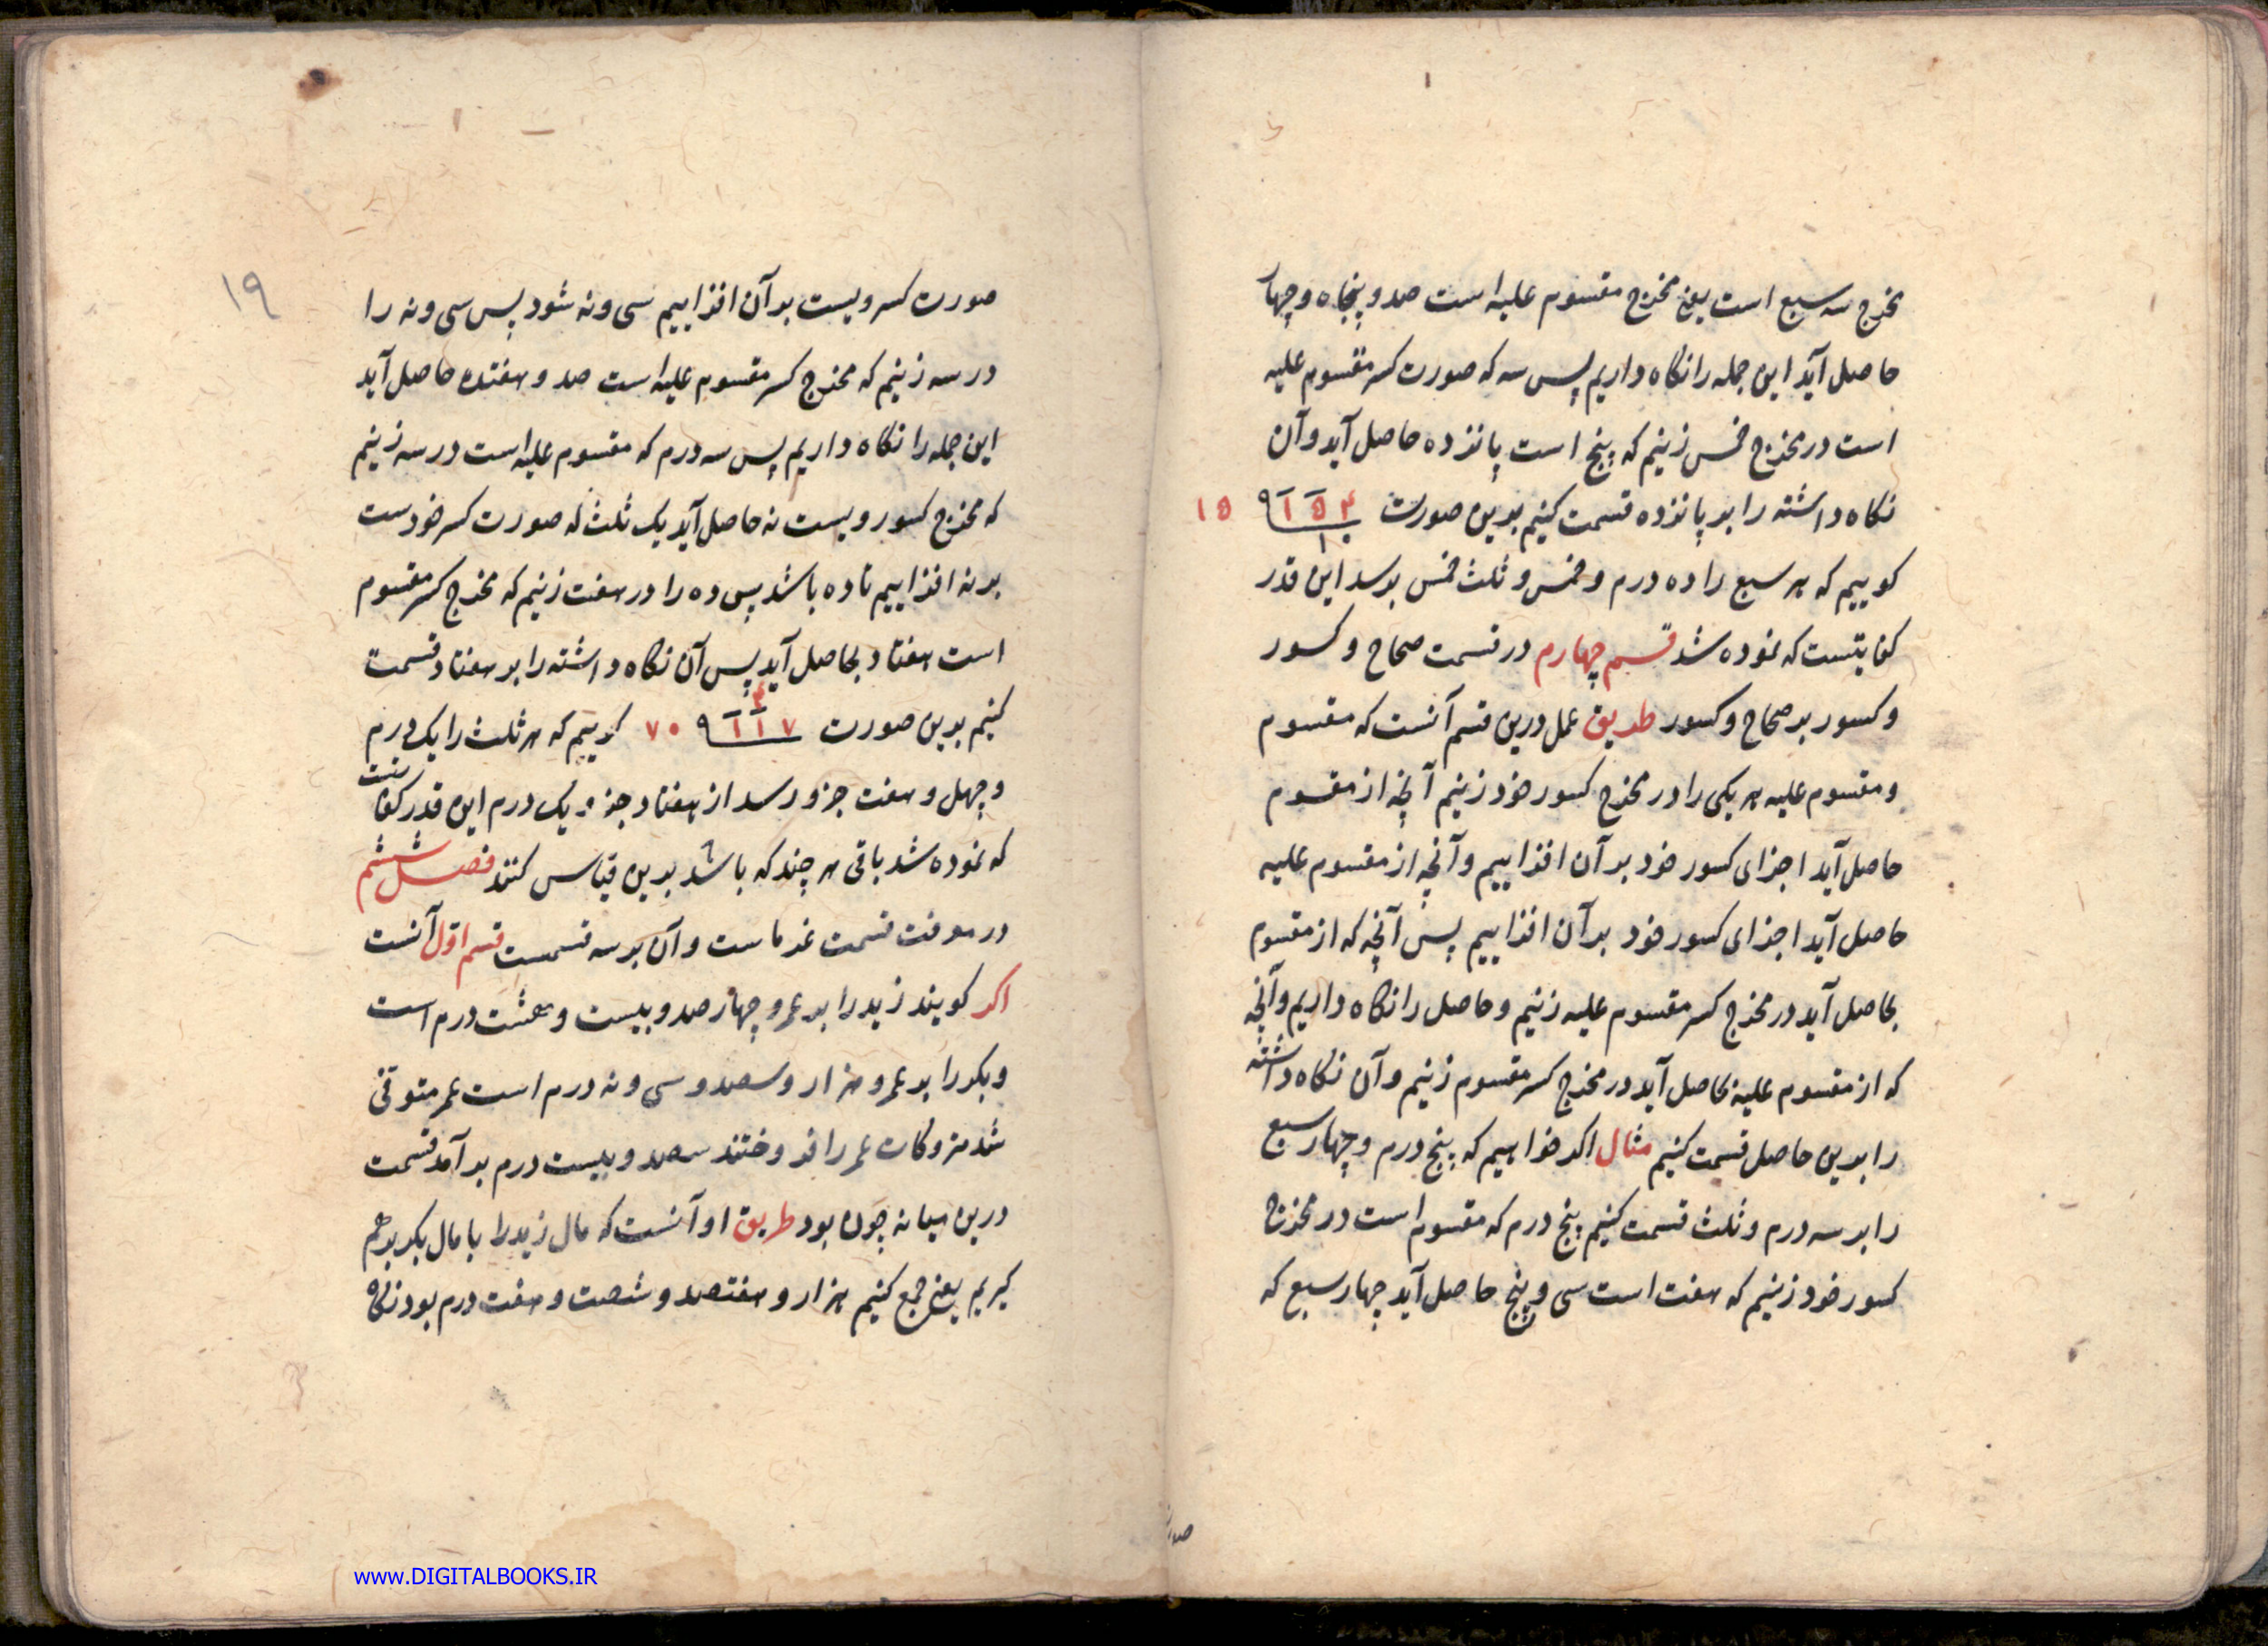 مخرج سه سبع است یعنی مخرج مقسوم علیه است صد و پنجاه و چهار
حاصل آید این جمله را نگاه داریم پس سه که صورت کسر مقسوم علیه
است در مخرج خمس زنیم که پنج است پانزده حاصل آید و آن
نگاه داشته را بر پانزده قسمت کنیم بدین صورت ۱۵۴ ۱۵
کوییم که هر سبع را ده درم و خمس و ثلث خمس برسد این قدر
کفایتست که نموده شد قسم چهارم در قسمت صحاح و کسور
و کسور بر صحاح و کسور طریق عمل درین قسم آنست که مقسوم
و مقسوم علیه هر یکی را در مخرج کسور خود زنیم آنچه از مقسوم
حاصل آید اجزای کسور خود بر آن افزاییم و آنچه از مقسوم علیه
حاصل آید اجزای کسور خود بر آن افزاییم پس آنچه که از مقسوم
بحاصل آید در مخرج کسر مقسوم علیه زنیم و حاصل را نگاه داریم و آنچه
که از مقسوم علیه بحاصل آید در مخرج کسر مقسوم زنیم و آن نگاه داشته
را بدین حاصل قسمت کنیم مثال اکر خواهیم که پنج درم و چهار سبع
را بر سه درم و ثلث قسمت کنیم پنج درم که مقسوم است در مخرج
کسور خود زنیم که هفت است سی و پنج حاصل آید چهار سبع که
۱۹
صورت کسر ویست بر آن افزاییم سی و نه شود پس سی و نه را
در سه زنیم که مخرج کسر مقسوم علیه است صد و هفتده حاصل آید
این جمله را نگاه داریم پس سه درم که مقسوم علیه است در سه زنیم
که مخرج کسور ویست نه حاصل آید یک ثلث که صورت کسر خودست
بر نه افزاییم تا ده باشد پس ده را در هفت زنیم که مخرج کسر مقسوم
است هفتاد بحاصل آید پس آن نگاه داشته را بر هفتاد قسمت
کنیم بدین صورت ۱۱۷ ۷۰ کوییم که هر ثلث را یک درم
و چهل و هفت جزو رسد از هفتاد جزو یک درم این قدر کفایتست
که نموده شد باقی هر چند که باشد بدین قیاس کنند فصل ششم
در معرفت قسمت غرماست و آن بر سه قسمست قسم اول آنست
اکر کویند زید را بر عمرو چهار صد و بیست و هشت درم است
و بکر را بر عمرو هزار و سیصد و سی و نه درم است عمر متوفی
شد متروکات عمر را فروختند سیصد و بیست درم بر آمد قسمت
درین میانه چون بود طریق او آنست که مال زید را با مال بکر بر هم
کیریم یعنی جمع کنیم هزار و هفتصد و شصت و هفت درم بود نگاه
www.DIGITALBOOKS.IR